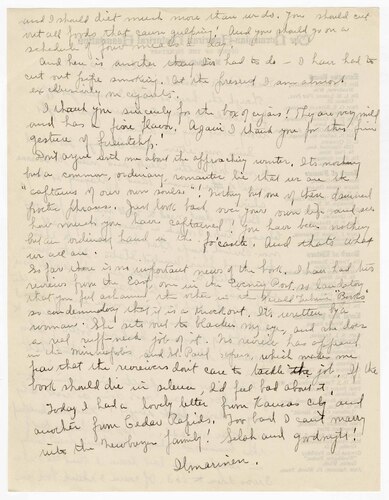 and I should diet much more than we do. You should cut
out all foods that cause gulping. And you should go on a
schedule of four meals a day.
And here is another thing I've had to do - I have had to
cut out pipe smoking. At the present I am almost
exclusively on cigars.
I thank you sincerely for the box of cigars! They are very mild
and has a fine flavor. Again I thank you for this fine
gesture of friendship!
Don't argue with me about the approaching winter. It's nothing
but a common, ordinary romantic lie that we are the
"captains of our own souls"! Nothing but one of these damned
poetic phrases. Just look back over your own life and see
how much you have captained! You have been nothing
but an ordinary hand in the focastle. And that's what
we all are.
So far there is no important news of the book. I have had two
reviews from the East, one in the Evening Post, so laudatory
that you feel ashamed, the other in the Herald Tribune "Books"
so condemnatory that it is a knockout. It's written by a
woman. She sets out to blacken my eye, and she does
a real ruffneck job of it. No review has appeared
in the Minneapolis and St. Paul papers, which makes me
fear that the reviewers don't care to tackle the job. If the
book should die in silence, I'd feel bad about it.
Today I had a lovely letter from Kansas City, and
another from Cedar Rapids. Too bad I can't marry
into the family! Selah and goodnight!
Ilmarinen.